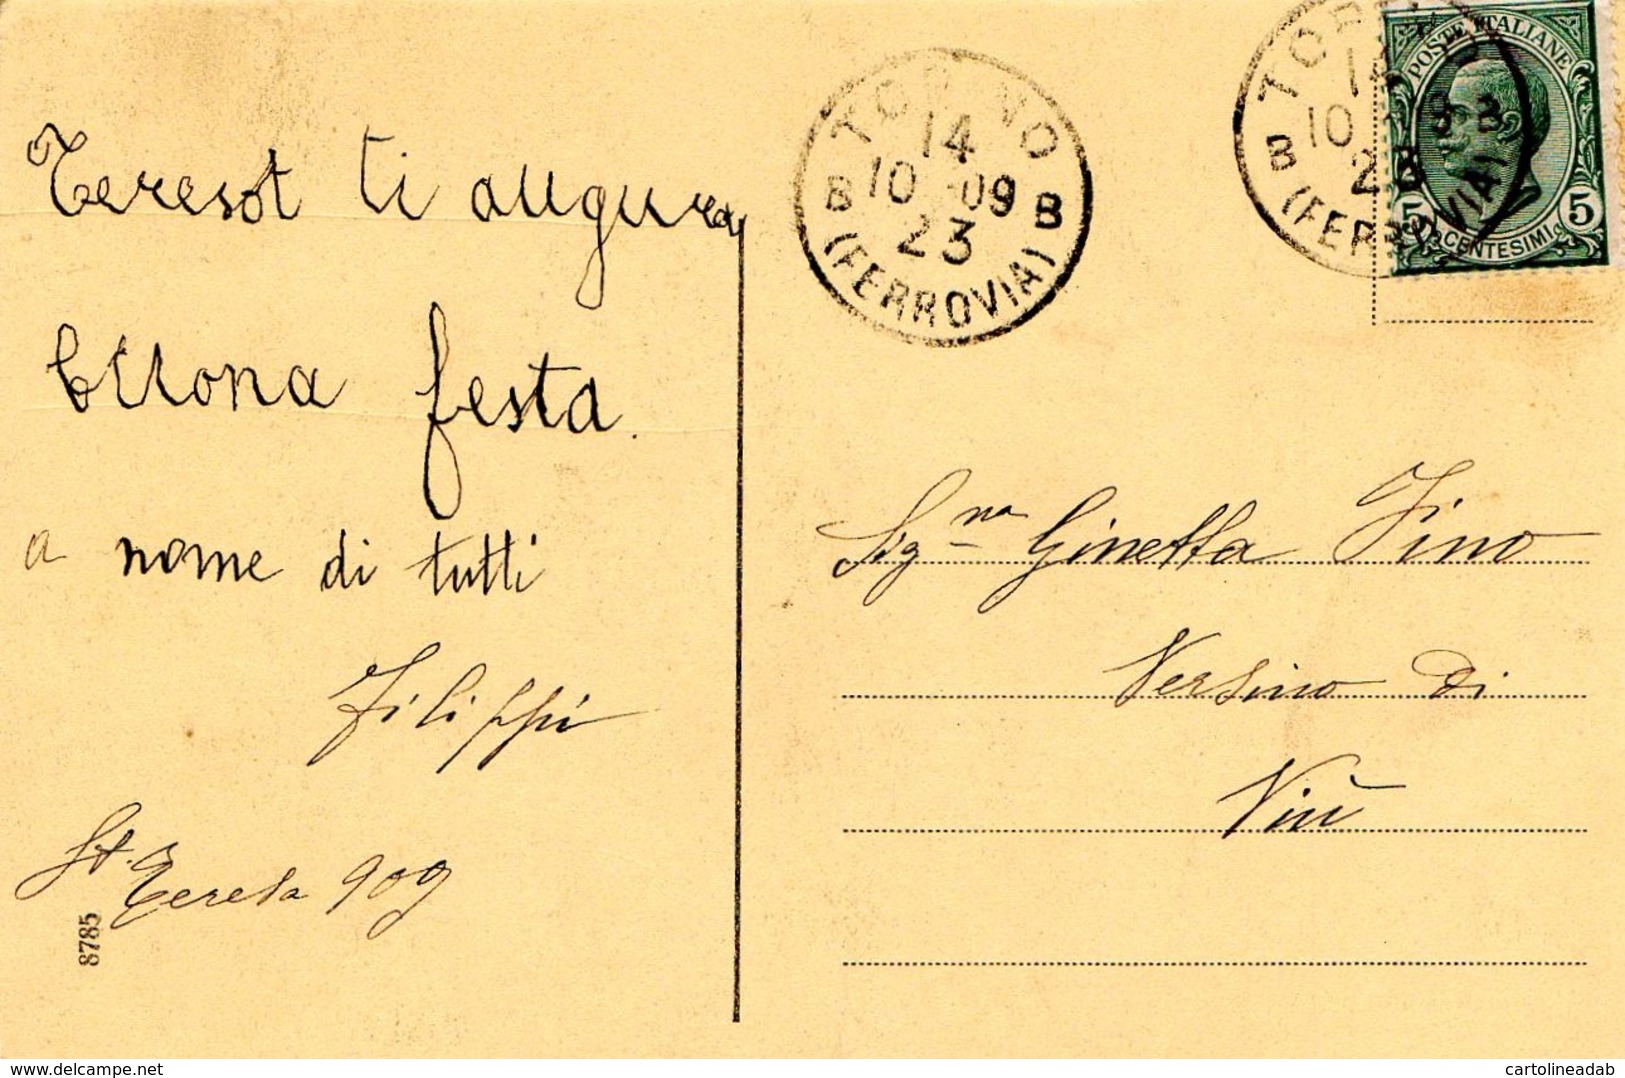 Teresot ti augura
buona festa.
a nome di tutti
Filippi
St. Teresa 909
8785
TORINO
14
10 -09
23
B B
(FERROVIA)
TORINO
14
10
23
B B
(FERROVIA)
POSTE ITALIANE
5 5
CENTESIMI
Sig.na Ginetta Fino
Versino di
Viù
www.delcampe.net
cartolineadab